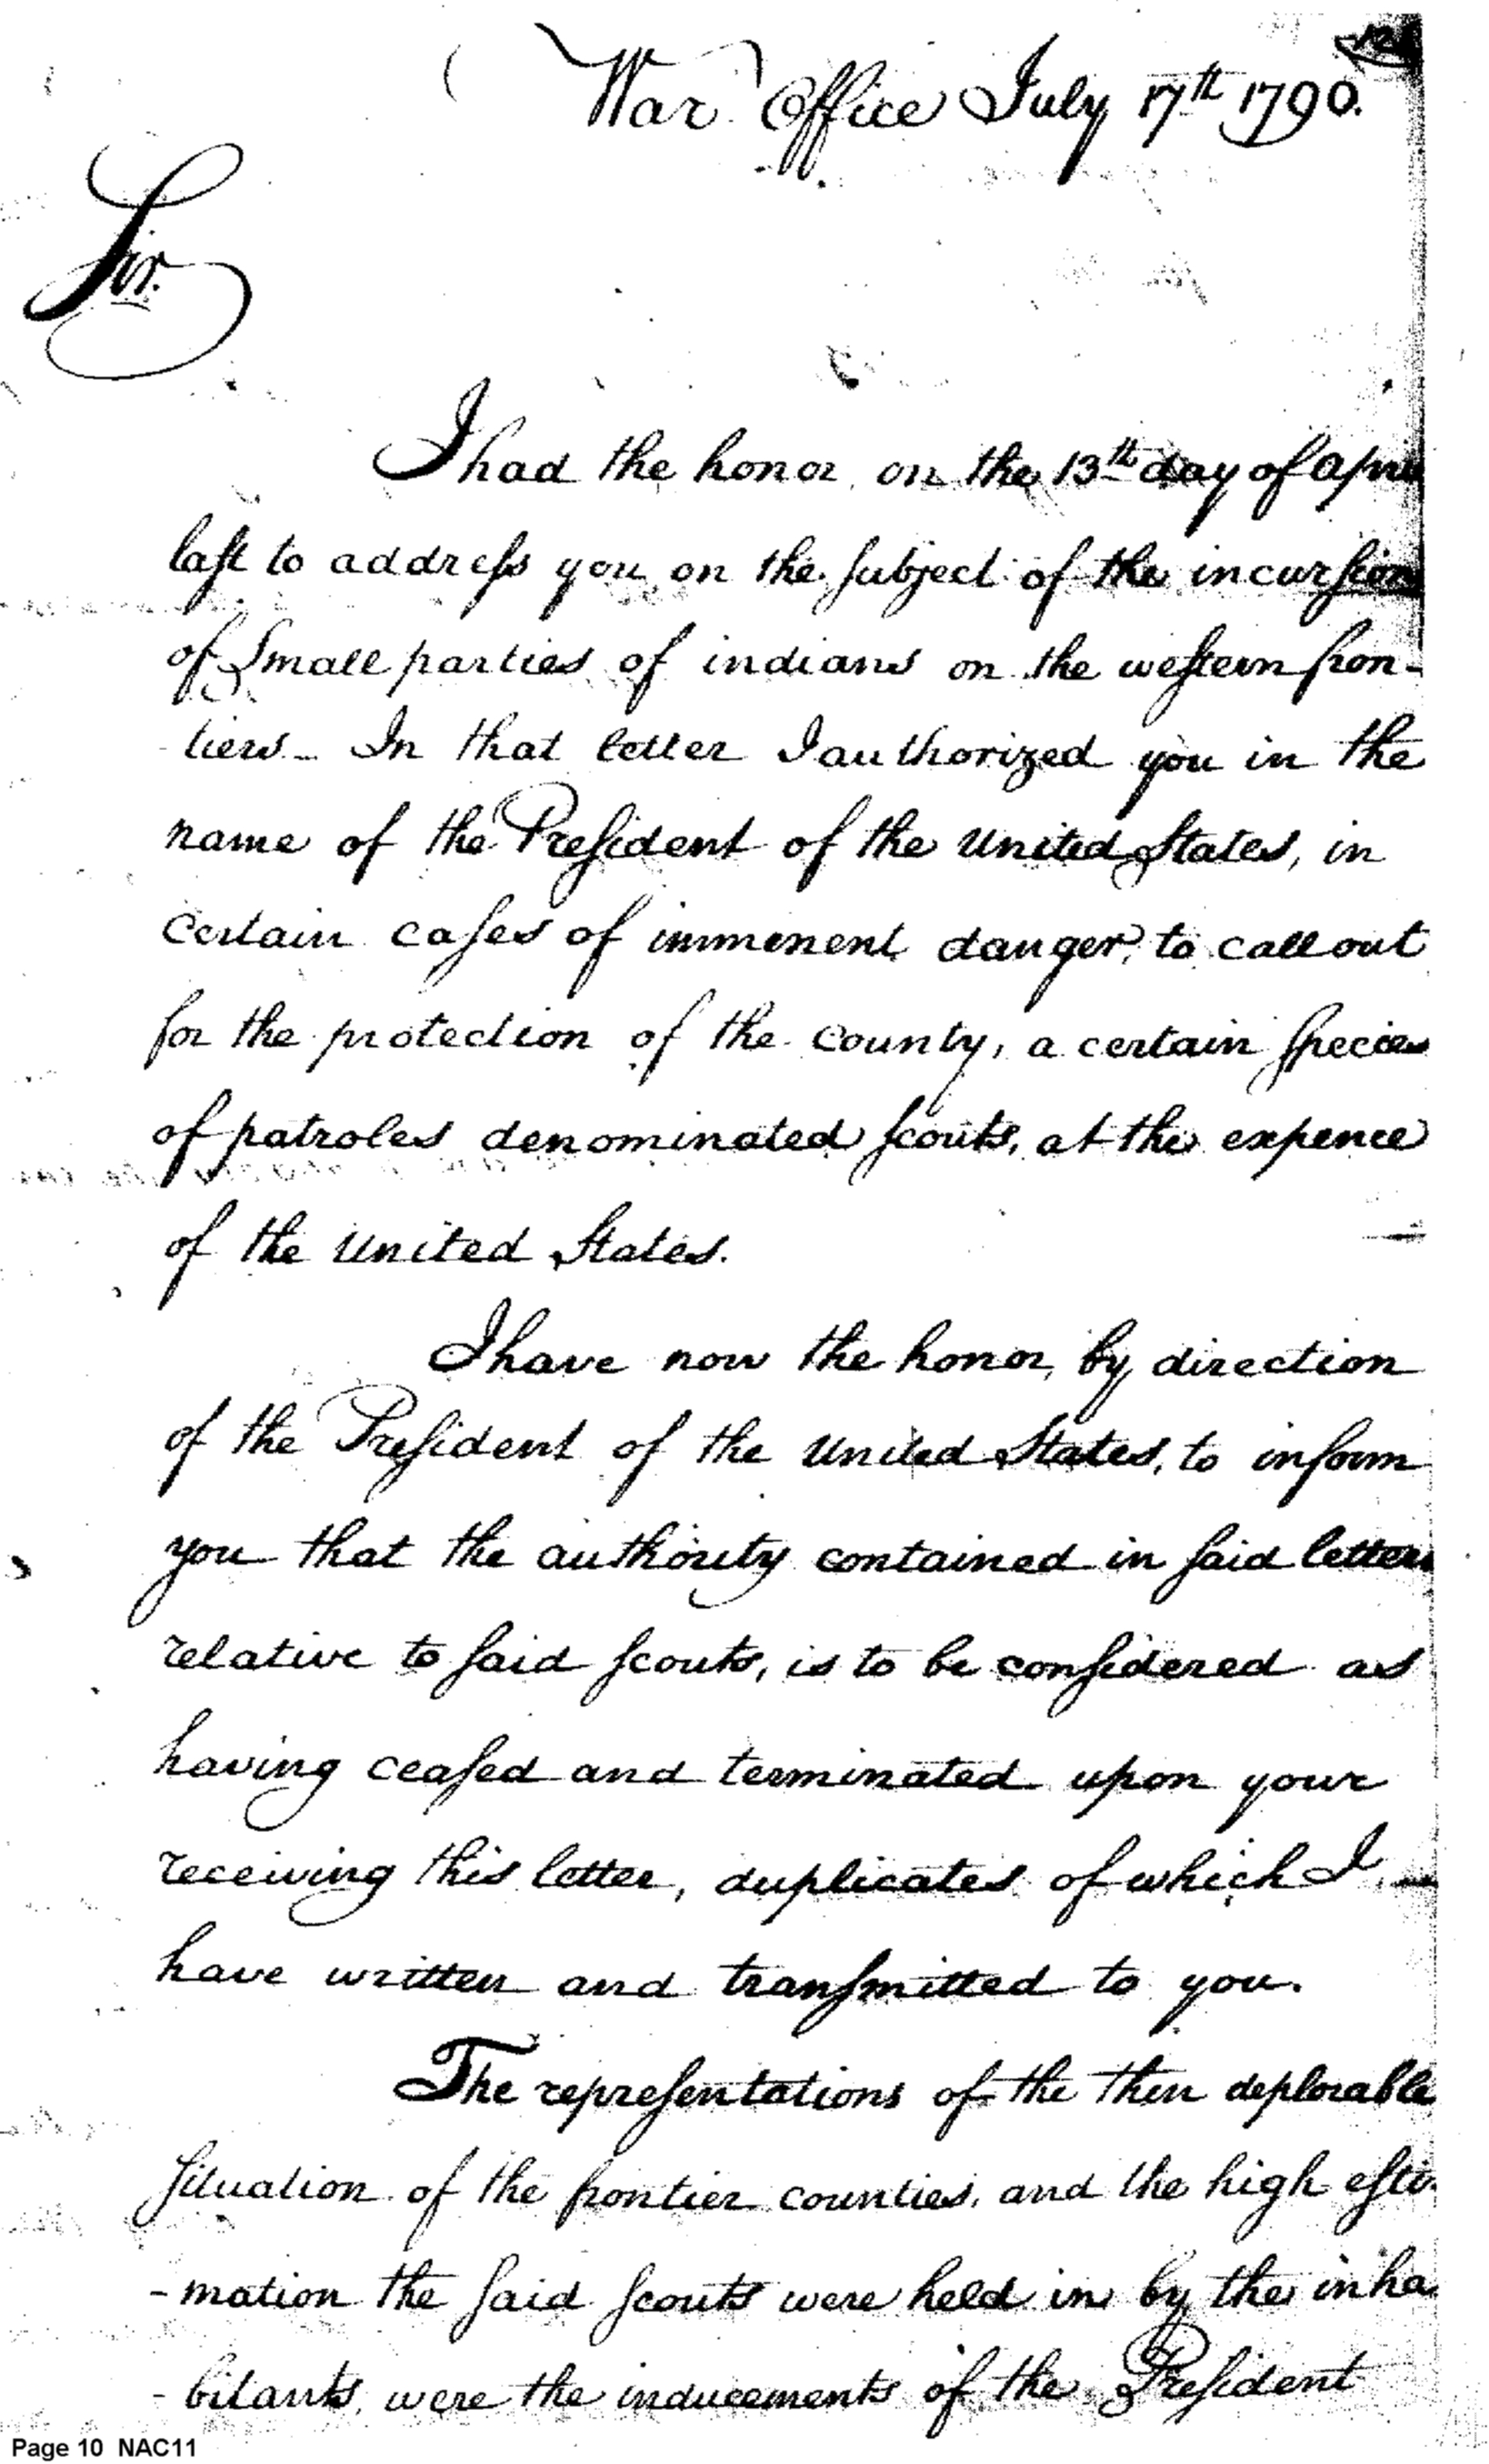 War Office July 17th 1790.
Sir.
I had the honor on the 13th day of April
last to address you on the subject of the incursions
of Small parties of indians on the western fron-
tiers - In that letter I authorized you in the
name of the President of the United States, in
certain cases of immenent danger, to call out
for the protection of the county, a certain species
of patroles denominated scouts, at the expence
of the United States.
I have now the honor, by direction
of the President of the United States, to inform
you that the authority contained in said letter
relative to said scouts, is to be considered as
having ceased and terminated upon your
receiving this letter, duplicates of which I
have written and transmitted to you.
The representations of the then deplorable
situation of the frontier counties, and the high esti-
-mation the said scouts were held in by the inha-
-bitants, were the inducements of the President
Page 10 NAC11